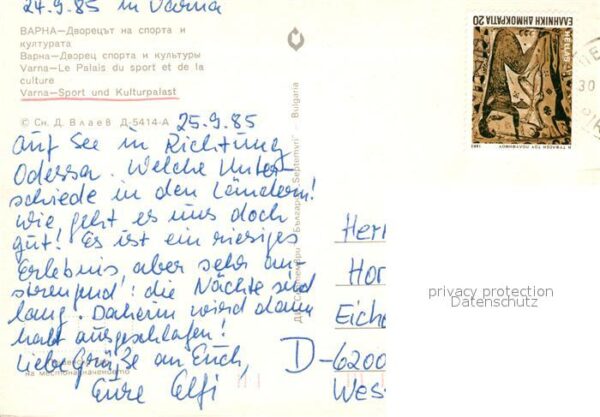 24.9.85 in Varna
ВАРНА—Дворецът на спорта и
културата
Варна—Дворец спорта и культуры
Varna—Le Palais du sport et de la
culture
Varna—Sport und Kulturpalast
© Сн. Д. Влаев Д-5414-А
25.9.85
auf See in Richtung
Odessa. Welche Unter-
schiede in den Ländern!
Wie geht es uns doch
gut! Es ist ein riesiges
Erlebnis, aber sehr an-
strengend: die Nächte sind
lang. Daheim wird dann
halt ausgeschlafen!
Liebe Grüße an Euch,
Eure Elfi
на местоназначението
Septemvri" - Bulgaria
ΕΛΛΗΝΙΚΗ ΔΗΜΟΚΡΑΤΙΑ 20
HELLAS
Η ΤΥΦΛΩΣΗ ΤΟΥ ΠΟΛΥΦΗΜΟΥ
1983
30
Herr
Hor
Eiche
D-6200
Wes
privacy protection
Datenschutz